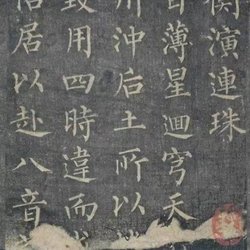 衡演連珠
日薄星迴穹天
川沖后土所以
致用四時違而
居以赴八音